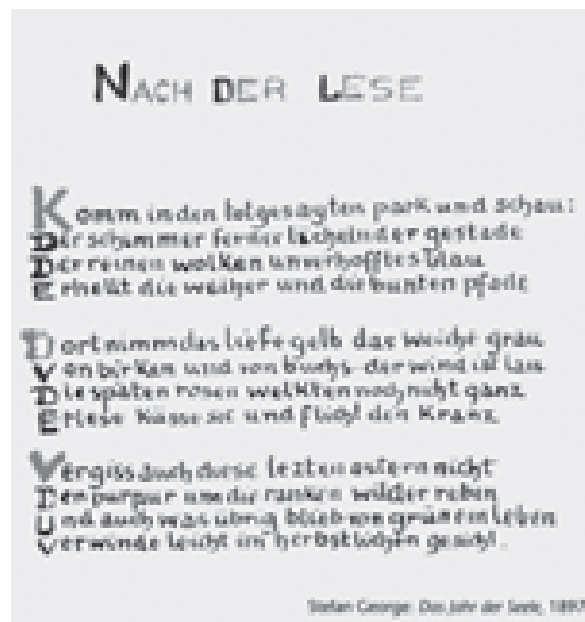 NACH DER LESE
Komm in den totgesagten park und schau:
Der schimmer ferner lächelnder gestade
Der reinen wolken unverhofftes blau
Erhellt die weiher und die bunten pfade
Dort nimm das tiefe gelb das weiche grau
Von birken und von buchs · der wind ist lau
Die späten rosen welkten noch nicht ganz
Erlese küsse sie und flicht den kranz
Vergiss auch diese lezten astern nicht
Den purpur um die ranken wilder reben
Und auch was übrig blieb von grünem leben
Verwinde leicht im herbstlichen gesicht.
Stefan George: Das Jahr der Seele, 1897